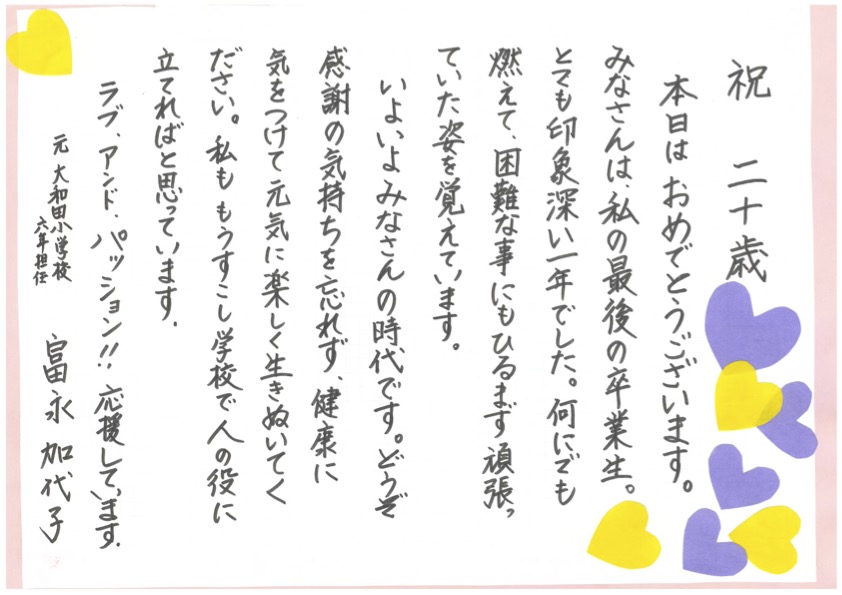 祝 二十歳
本日は おめでとうございます。
みなさんは、私の最後の卒業生。
とても印象深い一年でした。何にでも
燃えて、困難な事にもひるまず頑張っ
ていた姿を覚えています。
いよいよみなさんの時代です。どうぞ
感謝の気持ちを忘れず、健康に
気をつけて元気に楽しく生きぬいてく
ださい。私も もうすこし学校で人の役に
立てればと思っています.
ラブ、アンド、パッション!! 応援しています.
元 大和田小学校
六年担任
富永 加代子